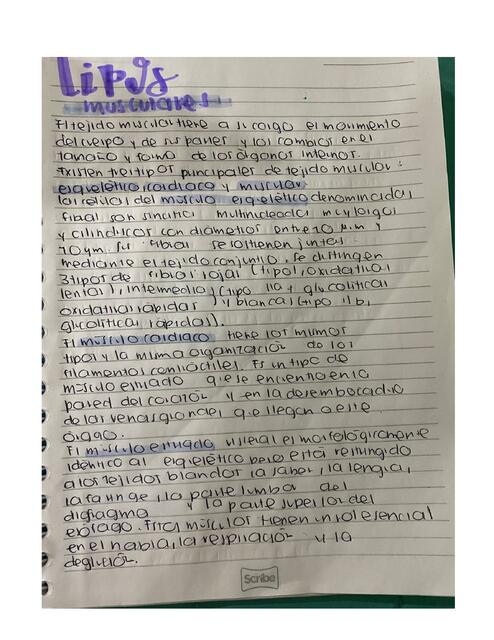 Tipos
musculares
El tejido muscular tiene a su cargo el movimiento
del cuerpo y de sus partes y los cambios en el
tamaño y forma de los órganos internos.
Existen tres tipos principales de tejido muscular:
esquelético, cardiaco y muscular
las células del músculo esquelético denominadas
fibras son sincitios multinucleadas muy largos
y cilíndricos con diámetros entre 10 µm y
70 µm. Sus fibras se sostienen juntas
mediante el tejido conjuntivo, se distinguen
3 tipos de fibras: rojas (tipo I, oxidativas
lentas), intermedias (tipo IIa y glucolíticas
oxidativas rápidas) y blancas (tipo IIb,
glucolíticas rápidas).
El músculo cardiaco tiene los mismos
tipos y la misma organización de los
filamentos contráctiles. Es un tipo de
músculo estriado que se encuentra en la
pared del corazón y en la desembocadura
de las venas grandes que llegan a este
órgano.
El músculo estriado visceral es morfológicamente
idéntico al esquelético pero está restringido
a los tejidos blandos a saber, la lengua,
la faringe, la parte lumbar del
diafragma y la parte superior del
esófago. Estos músculos tienen un rol esencial
en el habla, la respiración y la
deglución.
Scribe